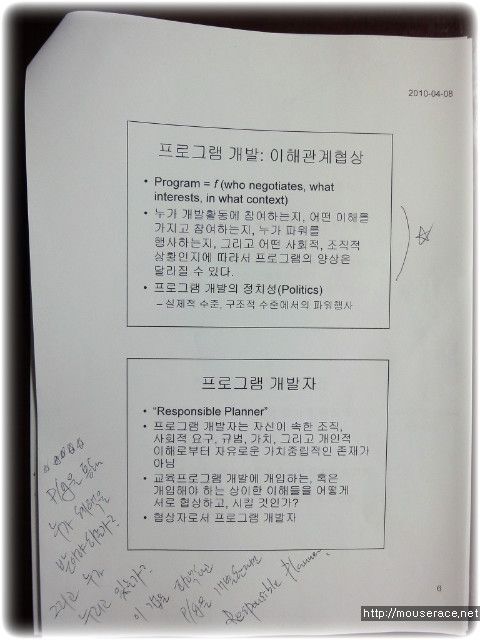 2010-04-08
프로그램 개발: 이해관계협상
• Program = f (who negotiates, what
interests, in what context)
• 누가 개발활동에 참여하는지, 어떤 이해를
가지고 참여하는지, 누가 파워를
행사하는지, 그리고 어떤 사회적, 조직적
상황인지에 따라서 프로그램의 양상은
달라질 수 있다.
• 프로그램 개발의 정치성(Politics)
– 실제적 수준, 구조적 수준에서의 파워행사
프로그램 개발자
• “Responsible Planner”
• 프로그램 개발자는 자신이 속한 조직,
사회적 요구, 규범, 가치, 그리고 개인적
이해로부터 자유로운 가치중립적인 존재가
아님
• 교육프로그램 개발에 개입하는, 혹은
개입해야 하는 상이한 이해들을 어떻게
서로 협상하고, 시킬 것인가?
• 협상자로서 프로그램 개발자
P/G을 통해
누가 혜택을
받아야 하는가?
그리고 누가
누리고 있는가?
Responsible Planner.
6
http://mouserace.net